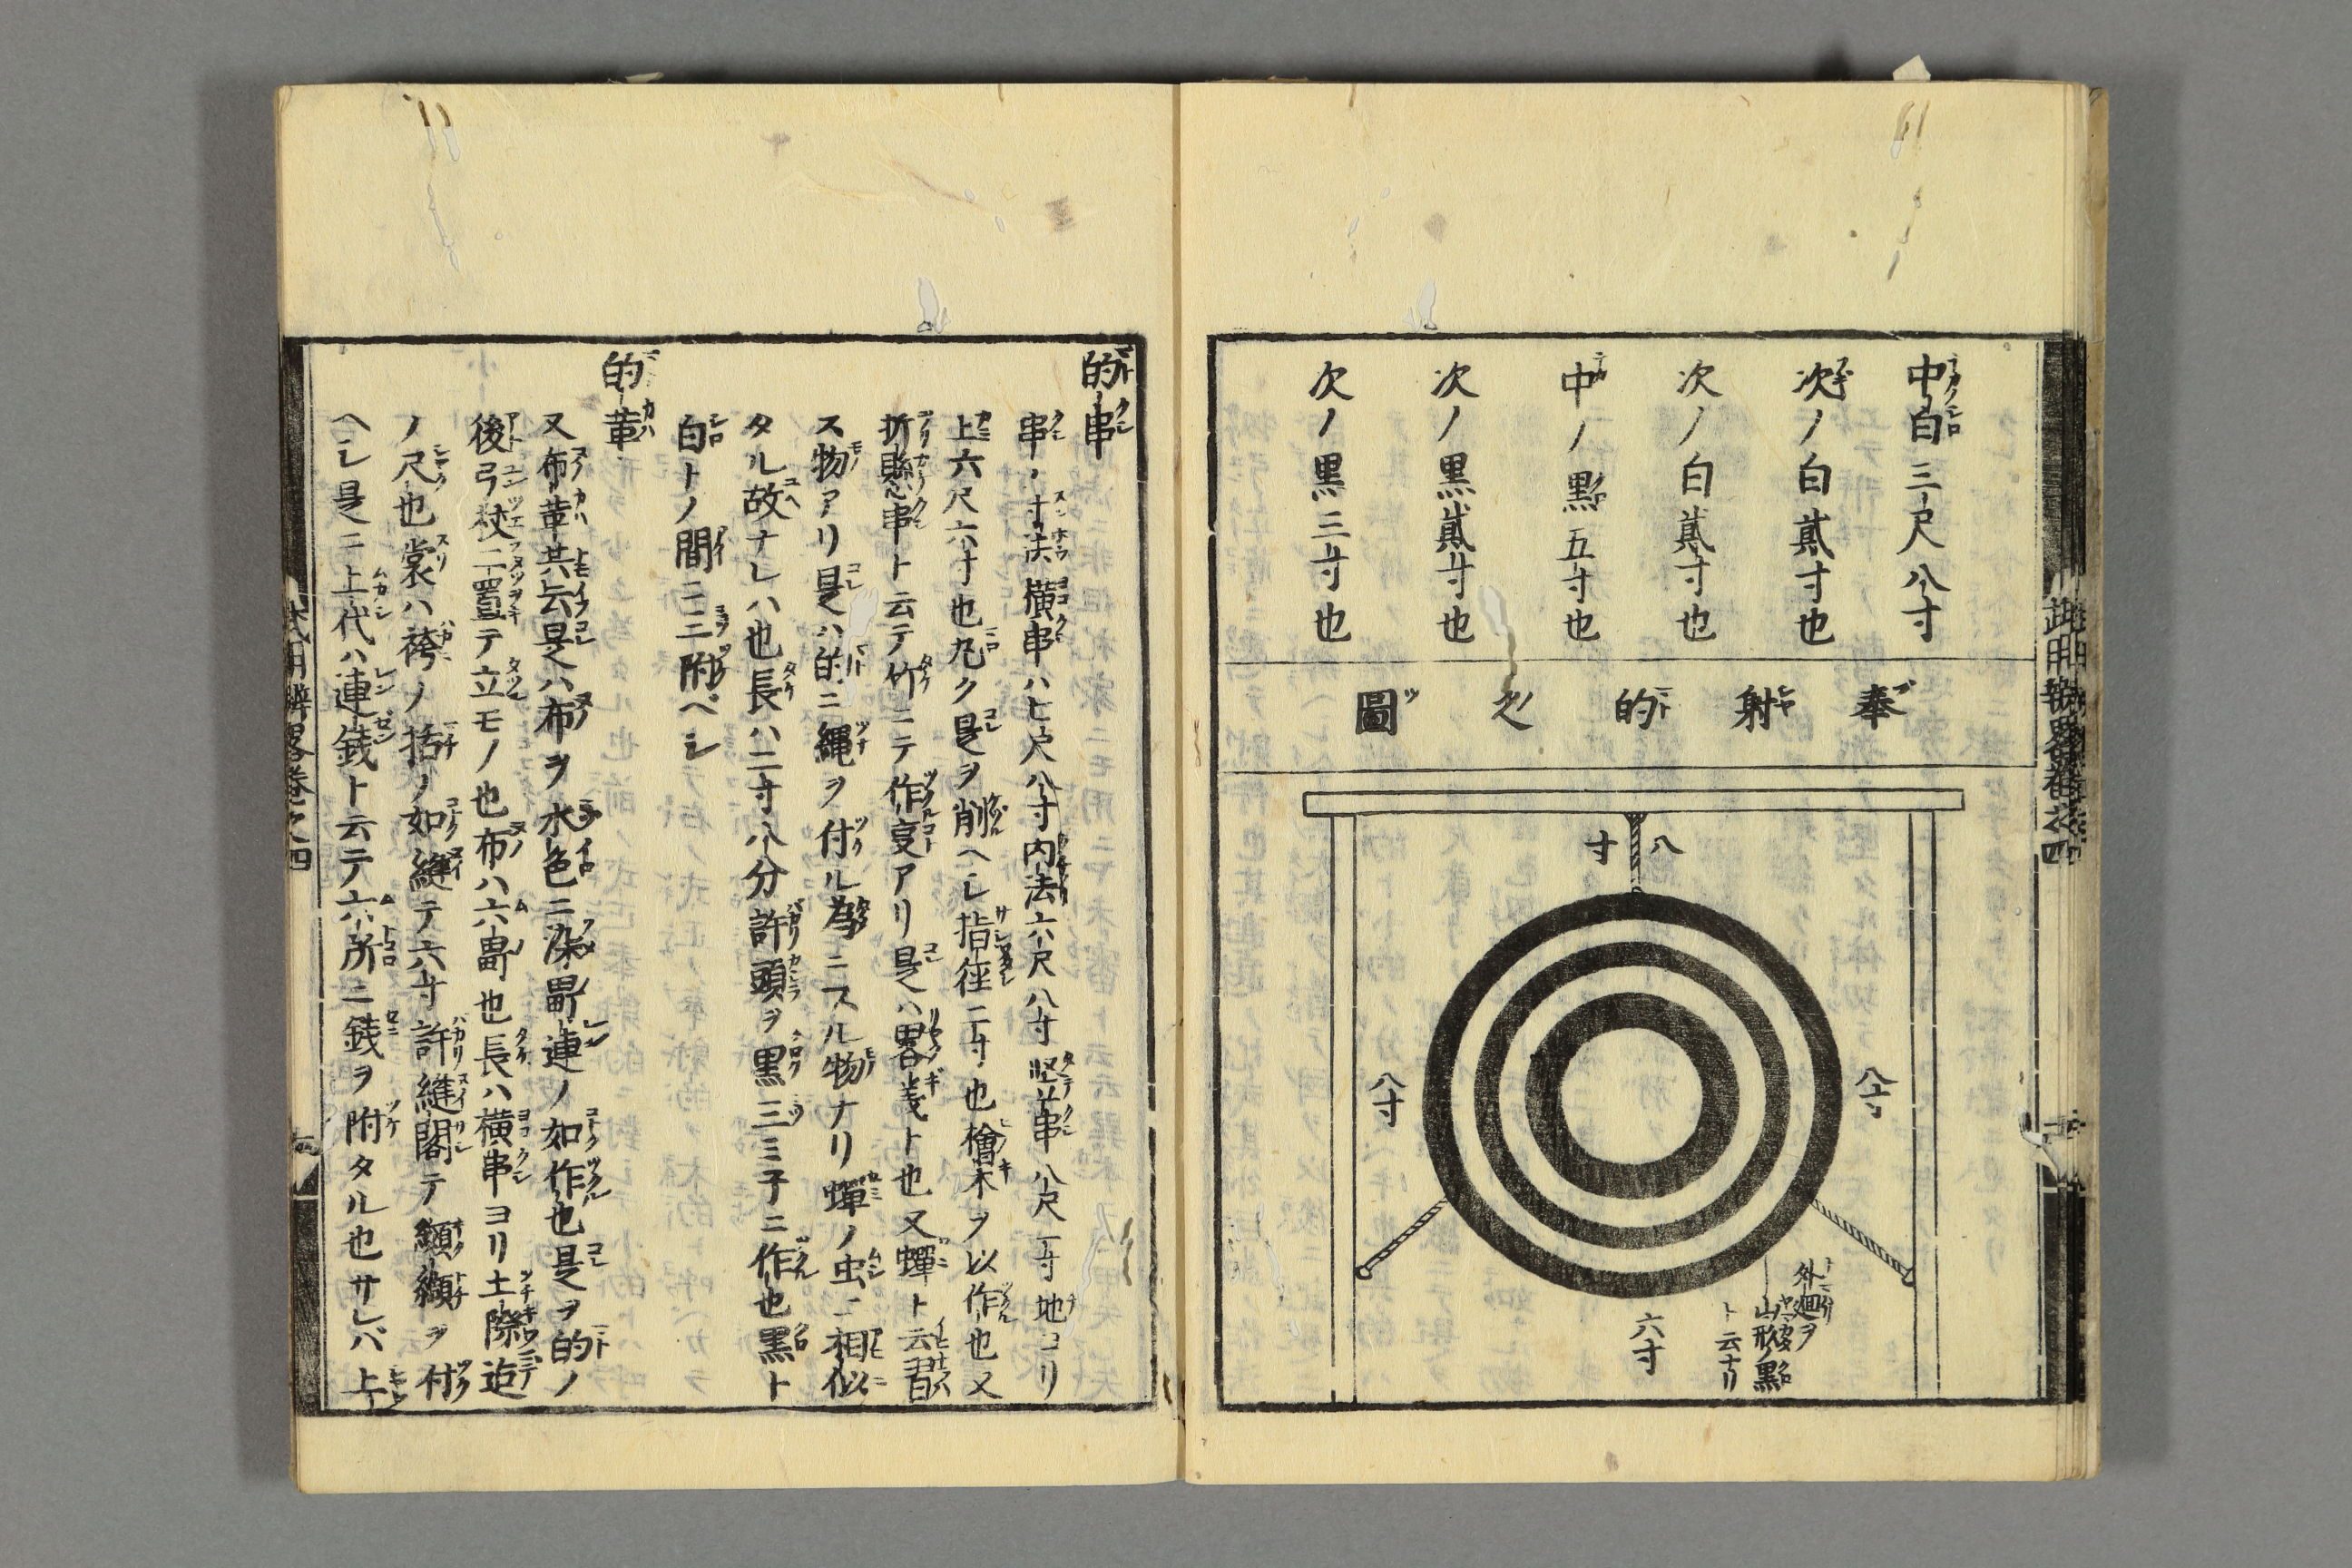 中白三尺八寸
次ノ白貳寸也
次ノ白貳寸也
中ノ黑五寸也
次ノ黑貳寸也
次ノ黑三寸也
奉射的之圖
八寸
八寸
八寸
六寸
外廻ヲ
山形ノ黑
ト云ナリ
的串
串ノ寸法横串ハ七尺八寸内法六尺八寸竪串八尺一寸地ヨリ
上六尺六寸也丸ク是ヲ削ヘシ指徑二寸也檜木ヲ以作也又
折懸串ト云テ竹ニテ作叓アリ是ハ畧義ト也又蟬ト云習
ス物アリ是ハ的ニ繩ヲ付ル爲ニスル物ナリ蟬ノ虫ニ相似
タル故ナレハ也長ハ二寸八分許頭ヲ黑三ミ子ニ作也黑ト
白トノ間ニ三附ベシ
的革
又布革共云是ハ布ヲ水色ニ染畧連ノ如作也是ヲ的ノ
後弓杖二置テ立モノ也布ハ六畧也長ハ横串ヨリ土際迠
ノ尺也裳ハ袴ノ括ノ如縫テ六寸許縫閣テ纐纈ヲ付
ヘシ是ニ上代ハ連錢ト云テ六所ニ錢ヲ附タル也サレバ上
武用辨畧卷之四